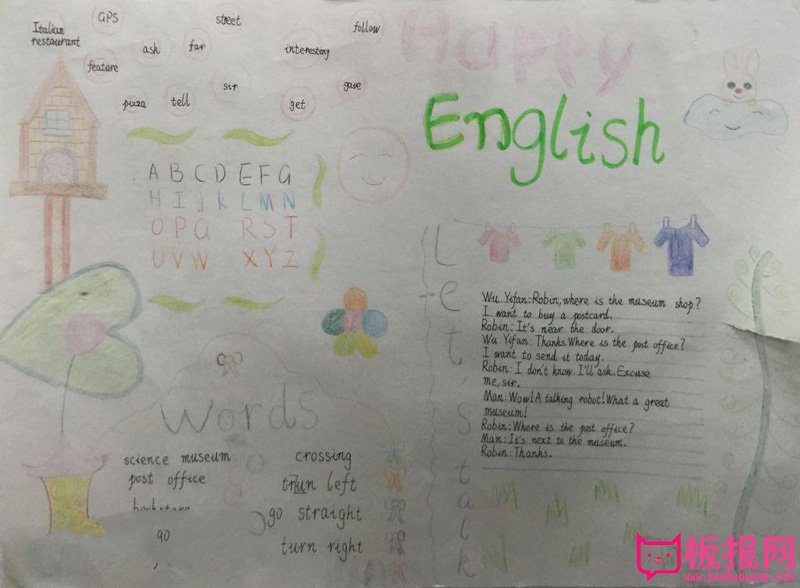 GPS
street
Italian
restaurant
ask
far
interesting
follow
feature
sir
gave
pizza
tell
get
Happy
English
A B C D E F G
H I J K L M N
O P Q R S T
U V W X Y Z
Let's talk
Wu Yifan: Robin, where is the museum shop?
I want to buy a postcard.
Robin: It's near the door.
Wu Yifan: Thanks. Where is the post office?
I want to send it today.
Robin: I don't know. I'll ask. Excuse
me, sir.
Man: Wow! A talking robot! What a great
museum!
Robin: Where is the post office?
Man: It's next to the museum.
Robin: Thanks.
words
science museum
post office
go
crossing
trun left
go straight
turn right
板报网